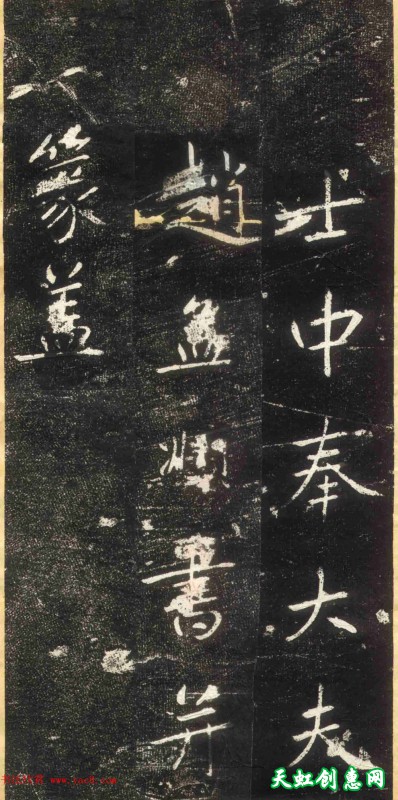 士中奉大夫
趙孟頫書并
篆盖
天虹创惠网